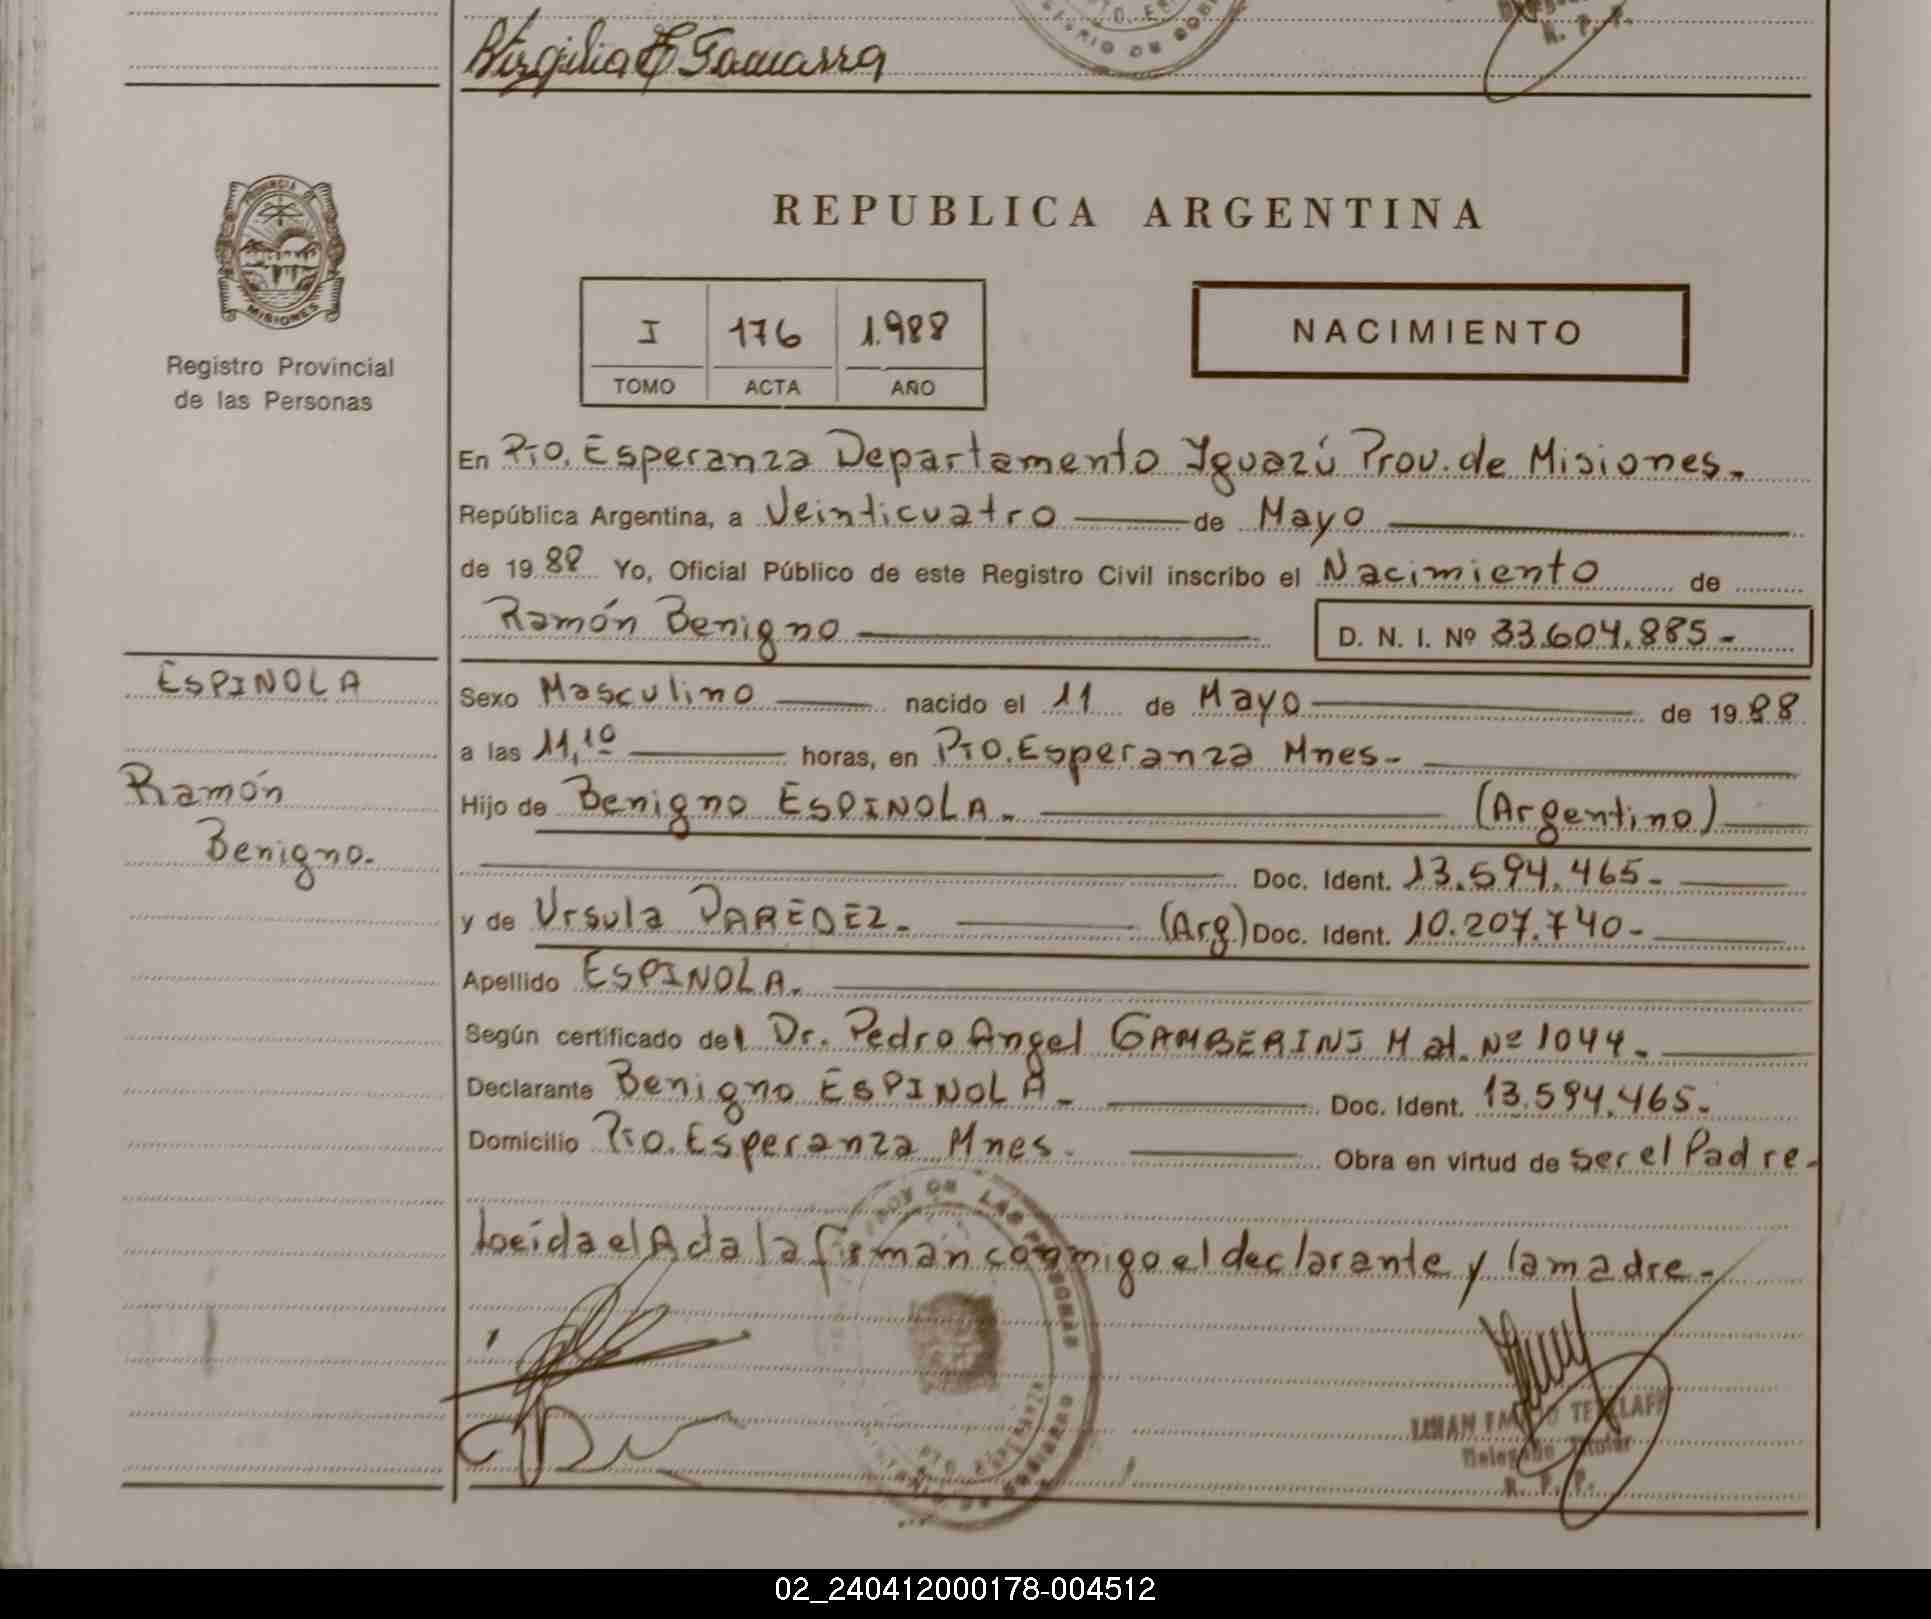 Virgilia E Gamarra
R. P. P.
PROVINCIA DE
MISIONES
Registro Provincial
de las Personas
REPUBLICA ARGENTINA
I 176 1.988
TOMO ACTA AÑO
NACIMIENTO
En Pto. Esperanza Departamento Yguazú Prov. de Misiones.
República Argentina, a Veinticuatro de Mayo
de 1988 Yo, Oficial Público de este Registro Civil inscribo el Nacimiento de
Ramón Benigno D. N. I. Nº 33.604.885-
ESPINOLA
Ramón
Benigno.
Sexo Masculino nacido el 11 de Mayo de 1988
a las 11,10 horas, en Pto. Esperanza Mnes-
Hijo de Benigno ESPINOLA. (Argentino)
Doc. Ident. 13.594.465-
y de Ursula PAREDEZ. (Arg) Doc. Ident. 10.207.740-
Apellido ESPINOLA.
Según certificado del Dr. Pedro Angel GAMBERINI Mat. Nº 1044.
Declarante Benigno ESPINOLA. Doc. Ident. 13.594.465.
Domicilio Pto. Esperanza Mnes. Obra en virtud de ser el Padre.
Leida el Acta la firman conmigo el declarante y la madre.
LAS PERSONAS
PTO. ESPERANZA
Delegado Titular
R. P. P.
02_240412000178-004512